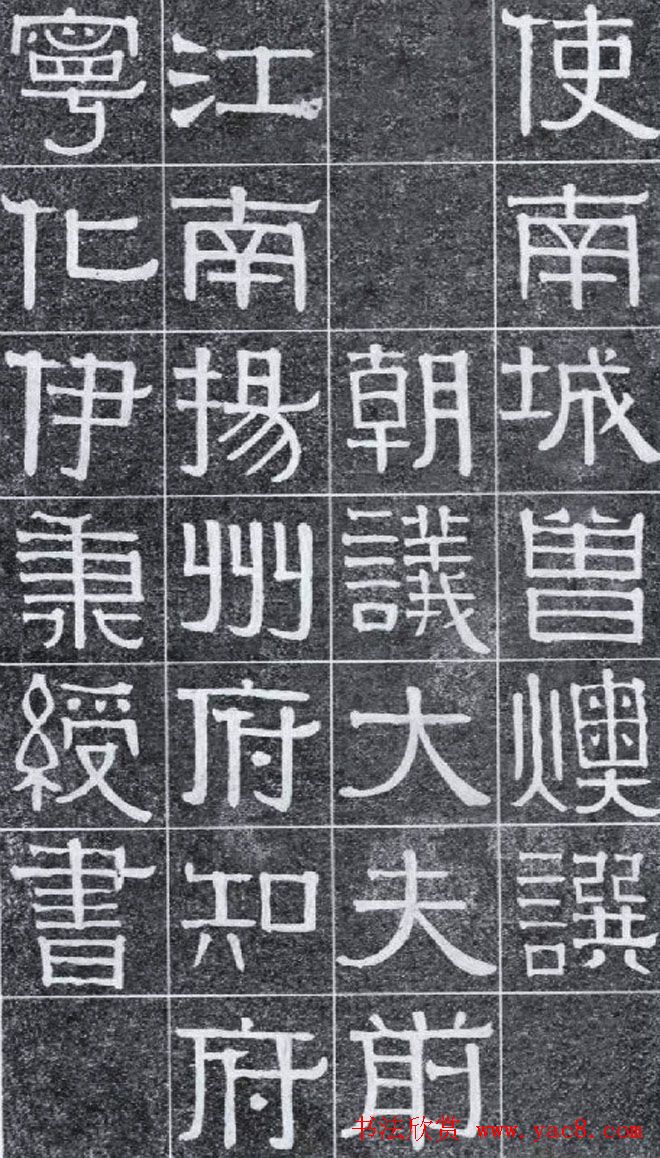 使南城曾燠譔
朝議大夫前
江南揚州府知府
寧化伊秉綬書
书法欣赏 www.yac8.com